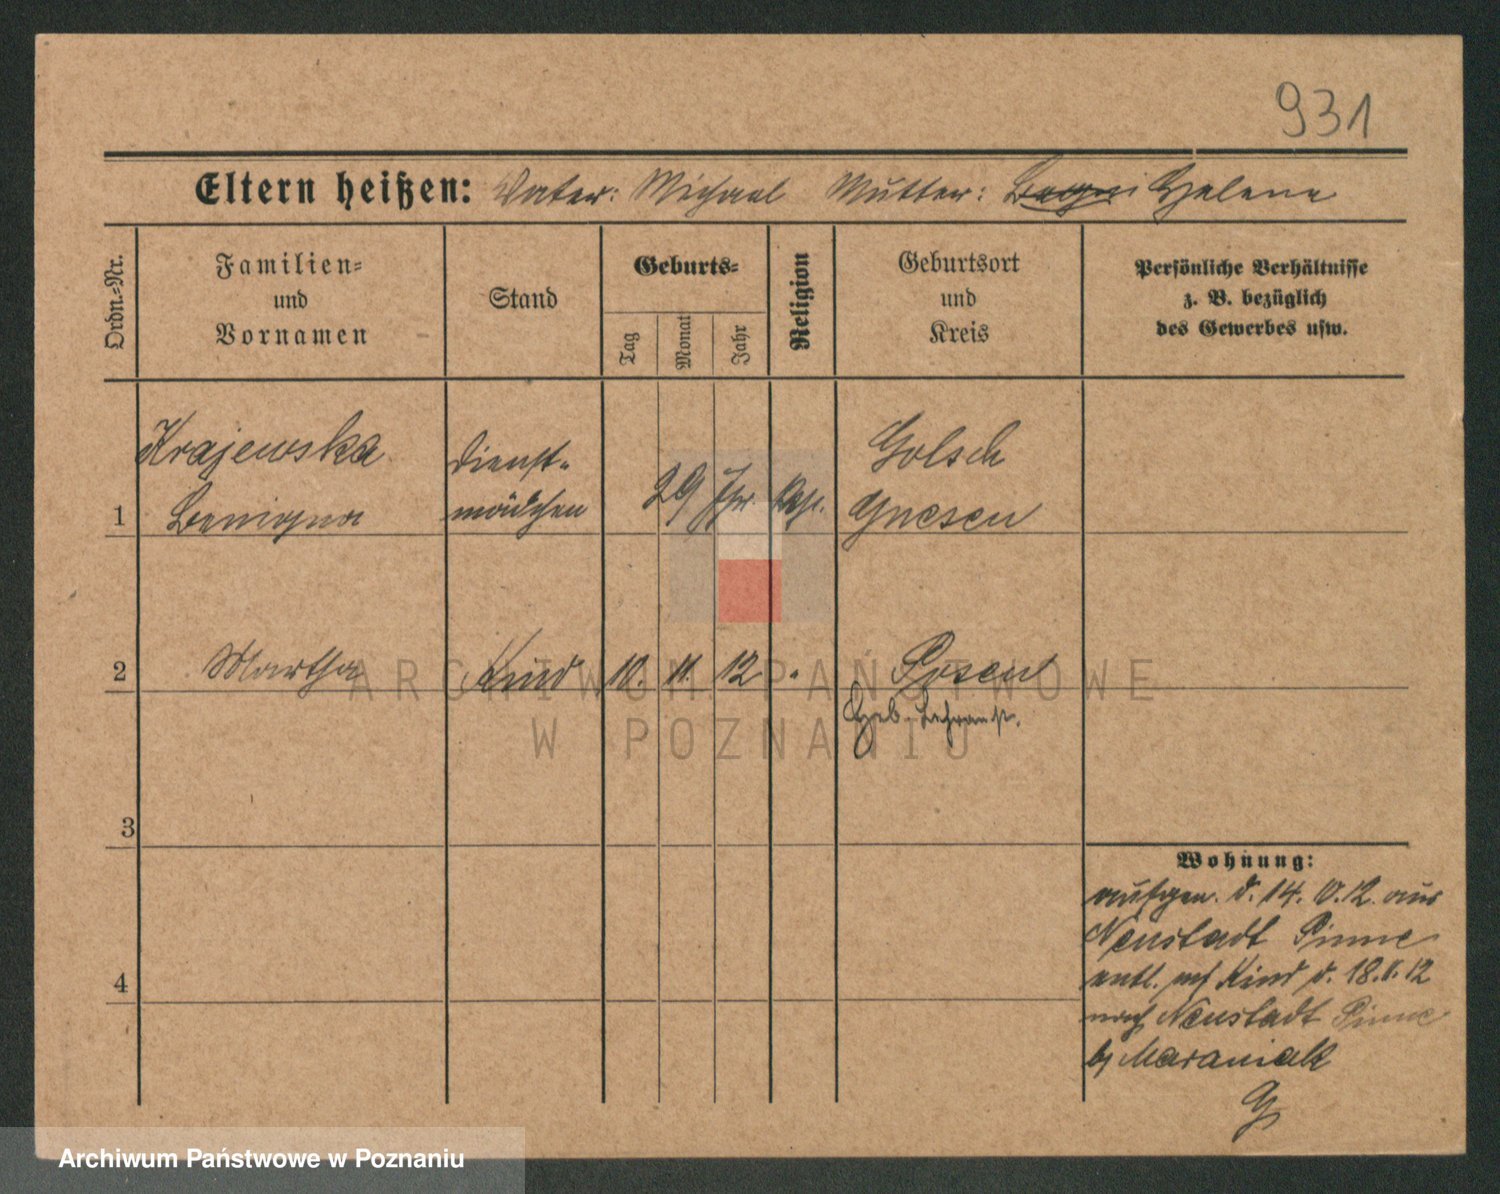 931
Eltern heißen: Vater: Michael Mutter: Helene
Ordn.-Nr.
Familien-
und
Vornamen
Stand
Geburts-
Tag
Monat
Jahr
Religion
Geburtsort
und
Kreis
Persönliche Verhältnisse
z. B. bezüglich
des Gewerbes usw.
1
Krajewska
Benigna
Dienst-
mädchen
29 Jhr.
kath.
Golsch
Gnesen
2
Martha
Kind
10. 11. 12
"
Posen
Heb. Lehranst.
3
4
Wohnung:
aufgen. d. 14. 10. 12. aus
Neustadt Pinne
entl. mit Kind d. 18. 11. 12
nach Neustadt Pinne
b/ Maraniak
ARCHIWUM PAŃSTWOWE
W POZNANIU
Archiwum Państwowe w Poznaniu